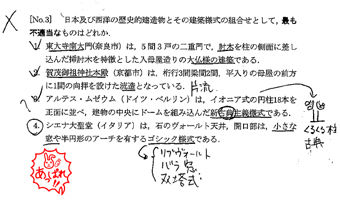 [No.3] 日本及び西洋の歴史的建造物とその建築様式の組合せとして、最も
不適当なものはどれか。
1. 東大寺南大門(奈良市)は、5間3戸の二重門で、肘木を柱の側面に差し
込んだ挿肘木を特徴とした入母屋造りの大仏様の建築である。
2. 賀茂御祖神社本殿(京都市)は、桁行3間梁間2間、平入りの母屋の前方
に1間の向拝を設けた流造となっている。片流
3. アルテス・ムゼウム(ドイツ・ベルリン)は、イオニア式の円柱18本を
正面に並べ、建物の中央にドームを組み込んだ新古典主義様式である。
4. シエナ大聖堂(イタリア)は、石のヴォールト天井、開口部は、小さな
窓や半円形のアーチを有するゴシック様式である。
くるくる柱
古典
リブヴォールト
バラ窓
双塔式
あっぱれ!!